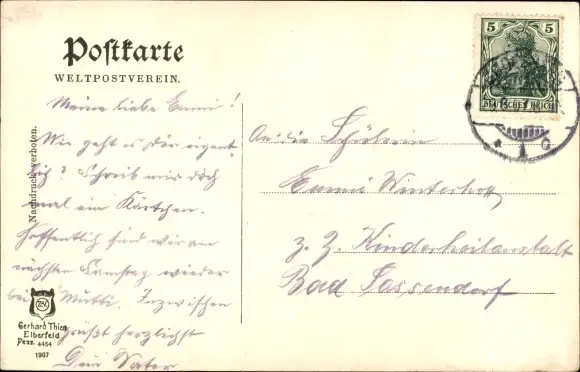 Postkarte
WELTPOSTVEREIN.
Nachdruck verboten.
Meine liebe Emmi!
Wie geht es Dir eigent-
lich? Schreib mir doch
mal ein Kärtchen.
Hoffentlich sind wir am
nächsten Samstag wieder
bei Mutti. Inzwischen
grüßt herzlichst
Dein Vater
Gerhard Thien
Elberfeld
Pess. 4454
1907
5 5
DEUTSCHES REICH
An die Schülerin
Emmi Winterhoff
z. Z. Kinderheilanstalt
Bad Sassendorf